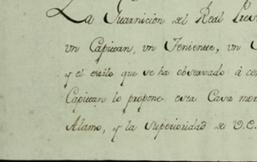 La Guarnición del Real Pres
un Capitan, un Teniente, un
y el estilo que se ha observado à
Capitan lo propone esta Casa
Alamo, y la Superioridad de V.E.